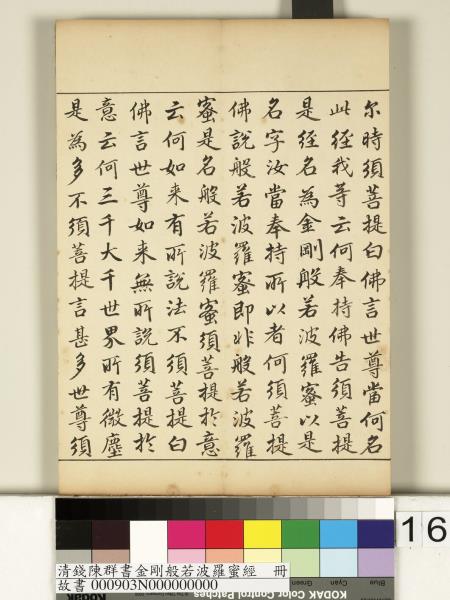 尔時須菩提白佛言世尊當何名
此経我等云何奉持佛告須菩提
是経名為金剛般若波羅蜜以是
名字汝當奉持所以者何須菩提
佛說般若波羅蜜即非般若波羅
蜜是名般若波羅蜜須菩提於意
云何如来有所說法不須菩提白
佛言世尊如来無所說須菩提於
意云何三千大千世界所有微塵
是為多不須菩提言甚多世尊須
16
清錢陳群書金剛般若波羅蜜經 冊
故書 000903N000000000
Blue Cyan Green
KODAK Color Control Patches KODAK